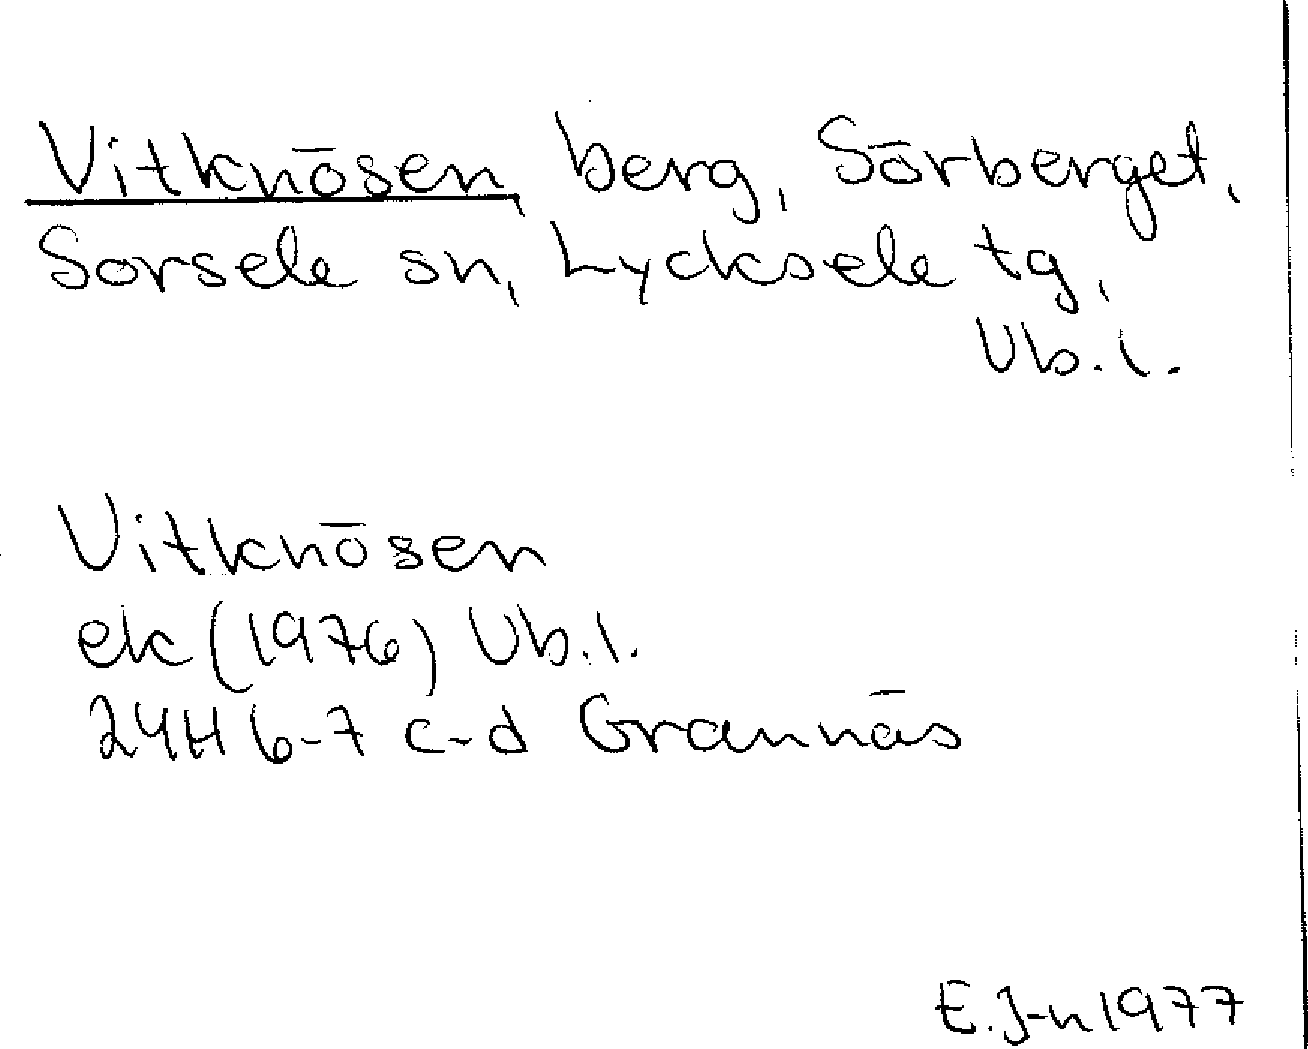 Vitknösen, berg, Sörberget,
Sorsele sn, Lycksele tg,
Vb.l.
Vitknösen
ek (1976) Vb.l.
24H 6-7 c-d Grannäs
E.J-n 1977